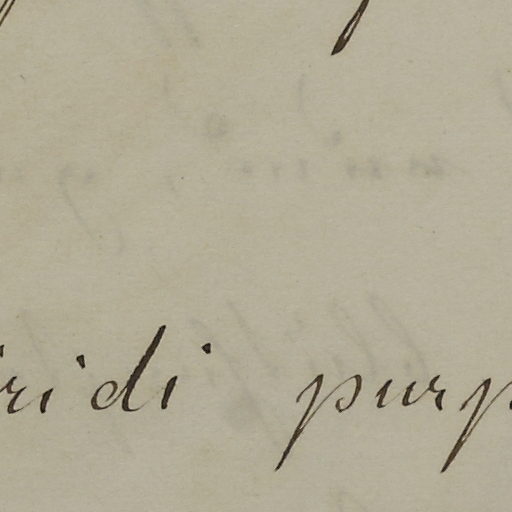 iridi purp